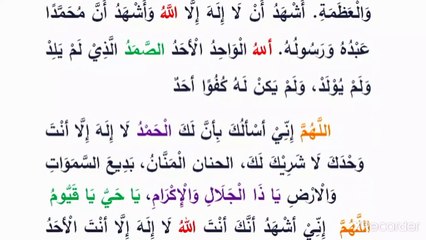 وَالْعَظَمَةِ. أَشْهَدُ أَنْ لَا إِلَهَ إِلَّا اللَّهُ وَأَشْهَدُ أَنَّ مُحَمَّدًا
عَبْدُهُ وَرَسُولُهُ. اَللهُ الْوَاحِدُ الْأَحَدُ الصَّمَدُ الَّذِيْ لَمْ يَلِدْ
وَلَمْ يُوْلَدْ، وَلَمْ يَكنْ لَهُ كُفُوًا أَحَدٌ
اللَّهُمَّ إِنِّيْ أَسأَلُكَ بِأَنَّ لَكَ الْحَمْدُ لَا إِلَهَ إِلَّا أَنْتَ
وَحْدَكَ لَا شَرِيْكَ لَكَ، الحنان الْمَنَّانُ، بَدِيعَ السَّمَوَاتِ
وَالْارْضِ يَا ذَا الْجَلَالِ وَالْإِكْرَامِ، يَا حَيُّ يَا قَيُّومُ
اللَّهُمَّ إِنِّيْ أَشْهَدُ أَنَّكَ أَنْتَ اللهُ لَا إِلَهَ إِلَّا أَنْتَ الْأَحَدُ